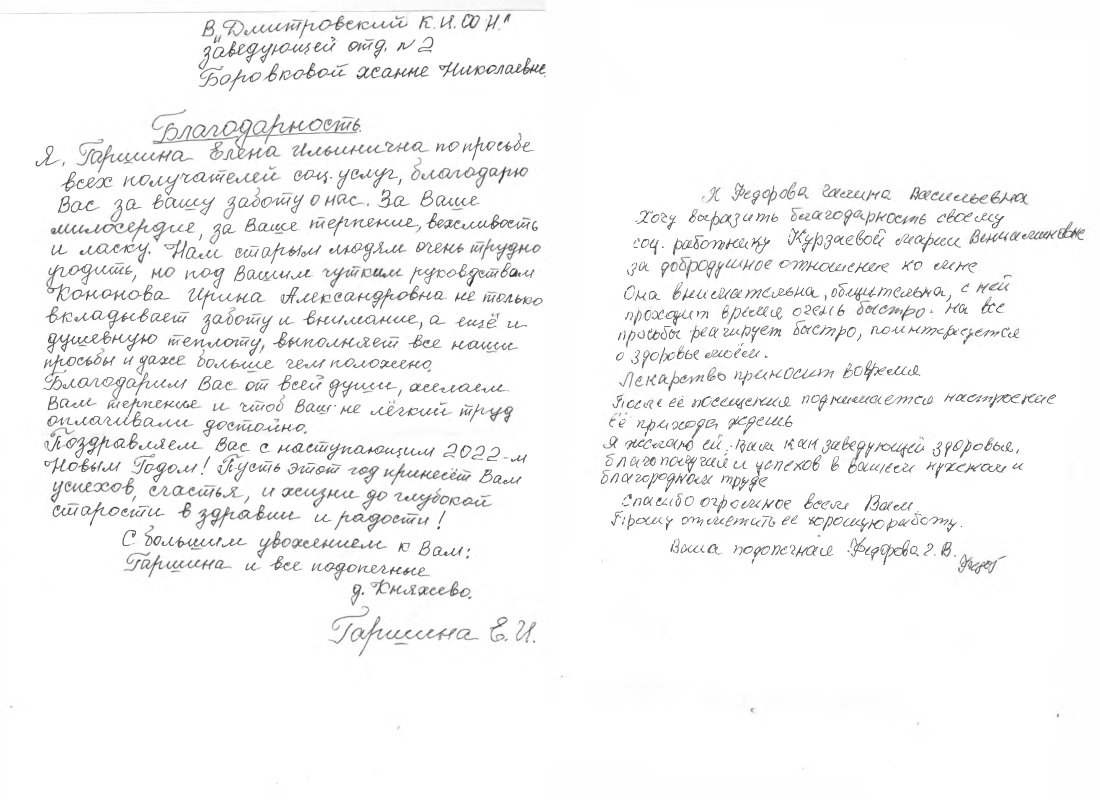 В "Дмитровский К.И.СОН."
заведующей отд. N 2
Боровковой Жанне Николаевне.
Благодарность.
Я, Гаршина Елена Ильинична по просьбе
всех получателей соц. услуг, благодарю
Вас за вашу заботу о нас. За Ваше
милосердие, за Ваше терпение, вежливость
и ласку. Нам старым людям очень трудно
угодить, но под Вашим чутким руководствам
Кононова Ирина Александровна не только
вкладывает заботу и внимание, а ещё и
душевную теплоту, выполняет все наши
просьбы и даже больше чем положено.
Благодарим Вас от всей души, желаем
Вам терпенье и чтоб Ваш не лёгкий труд
оплачивали достойно.
Поздравляем Вас с наступающим 2022-м
Новым Годом! Пусть этот год принесёт Вам
успехов, счастья, и жизни до глубокой
старости в здравии и радости!
С большим увожением к Вам:
Гаршина и все подопечные
д. Княжево.
Гаршина Е.И.
Я Федорова Галина Васильевна
Хочу выразить благодарность своему
соц. работнику Курзаевой Марии Вениаминовне
за добродушное отношение ко мне
Она внимательна, общительна, с ней
проходит время очень быстро. На все
просьбы реагирует быстро, поинтересуется
о здоровье моём.
Лекарство приносит вовремя
После её посещения поднимается настроение
её прихода ждешь
Я желаю ей, Вам как заведующей здоровья,
благополучия и успехов в вашем нужном и
благородном труде
Спасибо огромное всем Вам
Прошу отметить её хорошую работу.
Ваша подопечная Федорова Г.В.